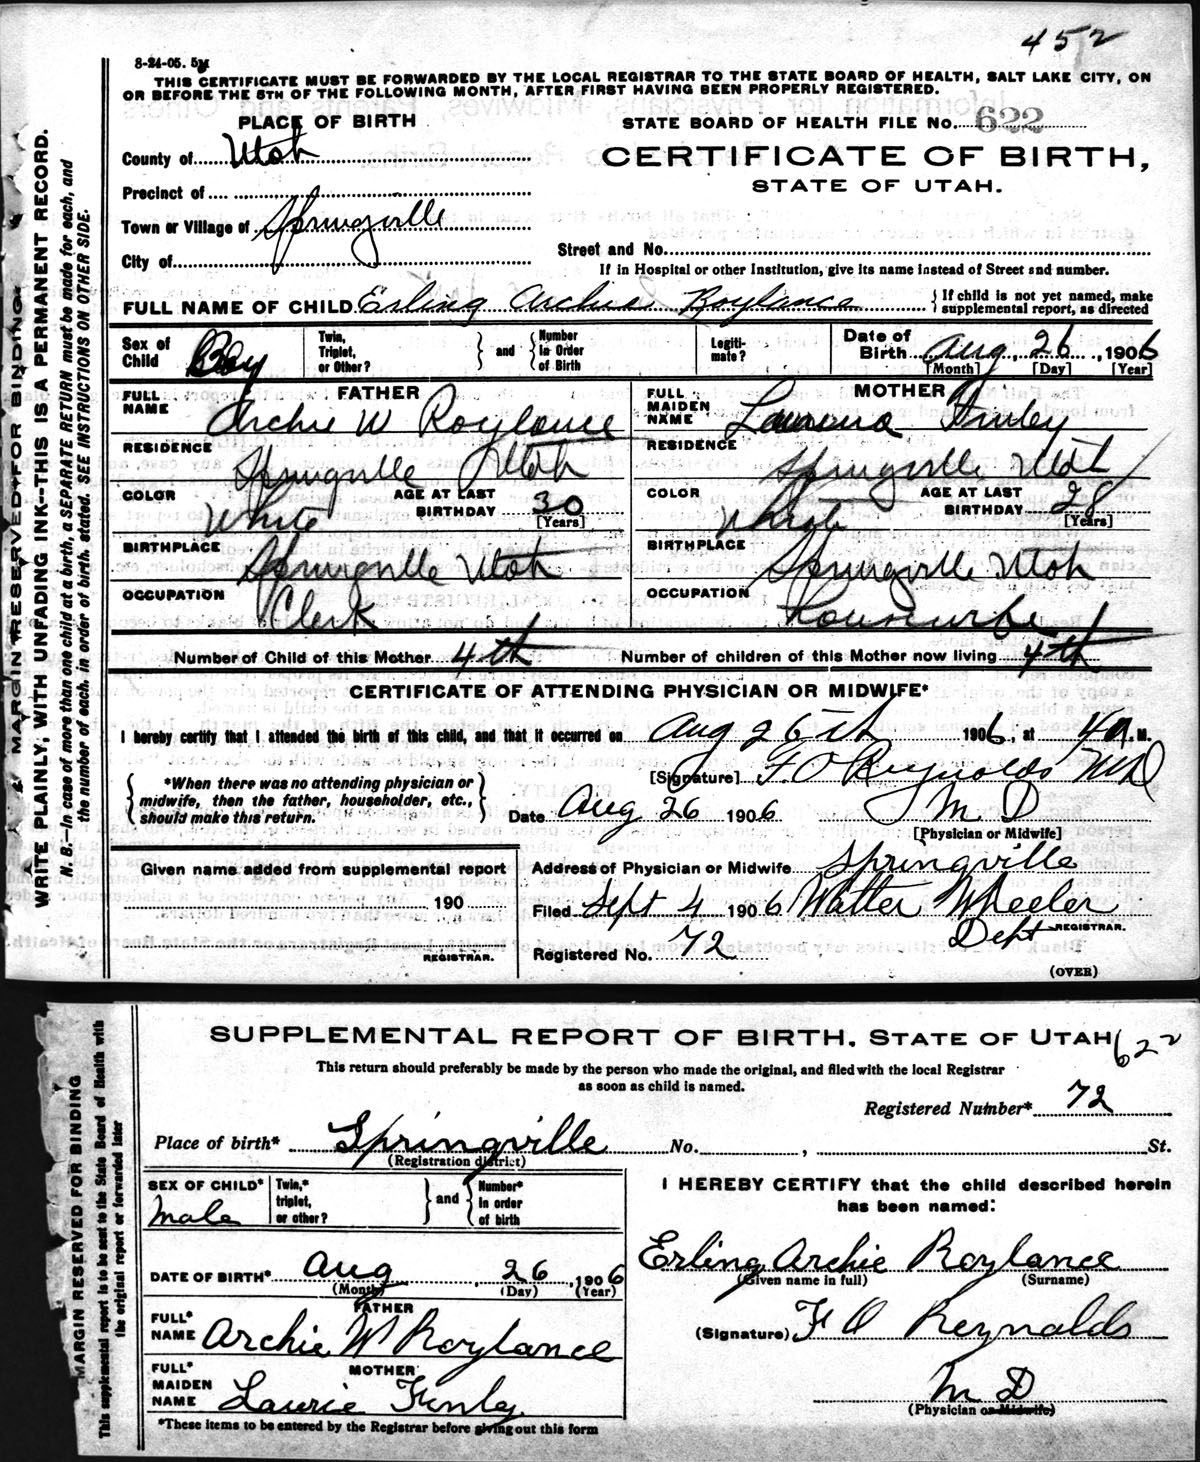 452
8-24-05. 5M
THIS CERTIFICATE MUST BE FORWARDED BY THE LOCAL REGISTRAR TO THE STATE BOARD OF HEALTH, SALT LAKE CITY, ON
OR BEFORE THE 5TH OF THE FOLLOWING MONTH, AFTER FIRST HAVING BEEN PROPERLY REGISTERED.
MARGIN RESERVED FOR BINDING
WRITE PLAINLY, WITH UNFADING INK--THIS IS A PERMANENT RECORD.
N. B.—In case of more than one child at a birth, a SEPARATE RETURN must be made for each, and
the number of each, in order of birth, stated. SEE INSTRUCTIONS ON OTHER SIDE.
PLACE OF BIRTH
County of Utah
Precinct of
Town or Village of Springville
City of
STATE BOARD OF HEALTH FILE No. 622
CERTIFICATE OF BIRTH,
STATE OF UTAH.
Street and No.
If in Hospital or other Institution, give its name instead of Street and number.
FULL NAME OF CHILD Erling Archie Roylance { If child is not yet named, make
supplemental report, as directed
Sex of
Child Boy
Twin,
Triplet,
or Other?
} and {
Number
in Order
of Birth
Legiti-
mate?
Date of
Birth Aug, 26, 1906
[Month] [Day] [Year]
FATHER
FULL
NAME Archie W Roylance
RESIDENCE
Springville Utah
COLOR White AGE AT LAST
BIRTHDAY 30
[Years]
BIRTHPLACE
Springville Utah
OCCUPATION
Clerk
MOTHER
FULL
MAIDEN
NAME Finley
RESIDENCE
Springville Utah
COLOR White AGE AT LAST
BIRTHDAY 28
[Years]
BIRTHPLACE
Springville Utah
OCCUPATION
Housewife
Number of Child of this Mother 4th Number of children of this Mother now living 4th
CERTIFICATE OF ATTENDING PHYSICIAN OR MIDWIFE*
I hereby certify that I attended the birth of this child, and that it occurred on Aug 26th 1906, at 4 A. M.
{ *When there was no attending physician or
midwife, then the father, householder, etc.,
should make this return. }
[Signature] F O Reynolds MD
Date Aug 26 1906 M D
[Physician or Midwife]
Given name added from supplemental report
190
REGISTRAR.
Address of Physician or Midwife Springville
Filed Sept 4 1906 Walter Wheeler
Dept REGISTRAR.
Registered No. 72
(OVER)
MARGIN RESERVED FOR BINDING
This supplemental report is to be sent to the State Board of Health with
the original report or forwarded later
SUPPLEMENTAL REPORT OF BIRTH, STATE OF UTAH 622
This return should preferably be made by the person who made the original, and filed with the local Registrar
as soon as child is named.
Registered Number* 72
Place of birth* Springville No. , St.
(Registration district)
SEX OF CHILD*
Male
Twin,*
triplet,
or other?
} and {
Number*
in order
of birth
DATE OF BIRTH* Aug , 26 , 1906
(Month) (Day) (Year)
FATHER
FULL*
NAME Archie W Roylance
MOTHER
FULL*
MAIDEN
NAME Laurie Finley
*These items to be entered by the Registrar before giving out this form
I HEREBY CERTIFY that the child described herein
has been named:
Erling Archie Roylance
(Given name in full) (Surname)
(Signature) F O Reynolds
M D
(Physician or Midwife)